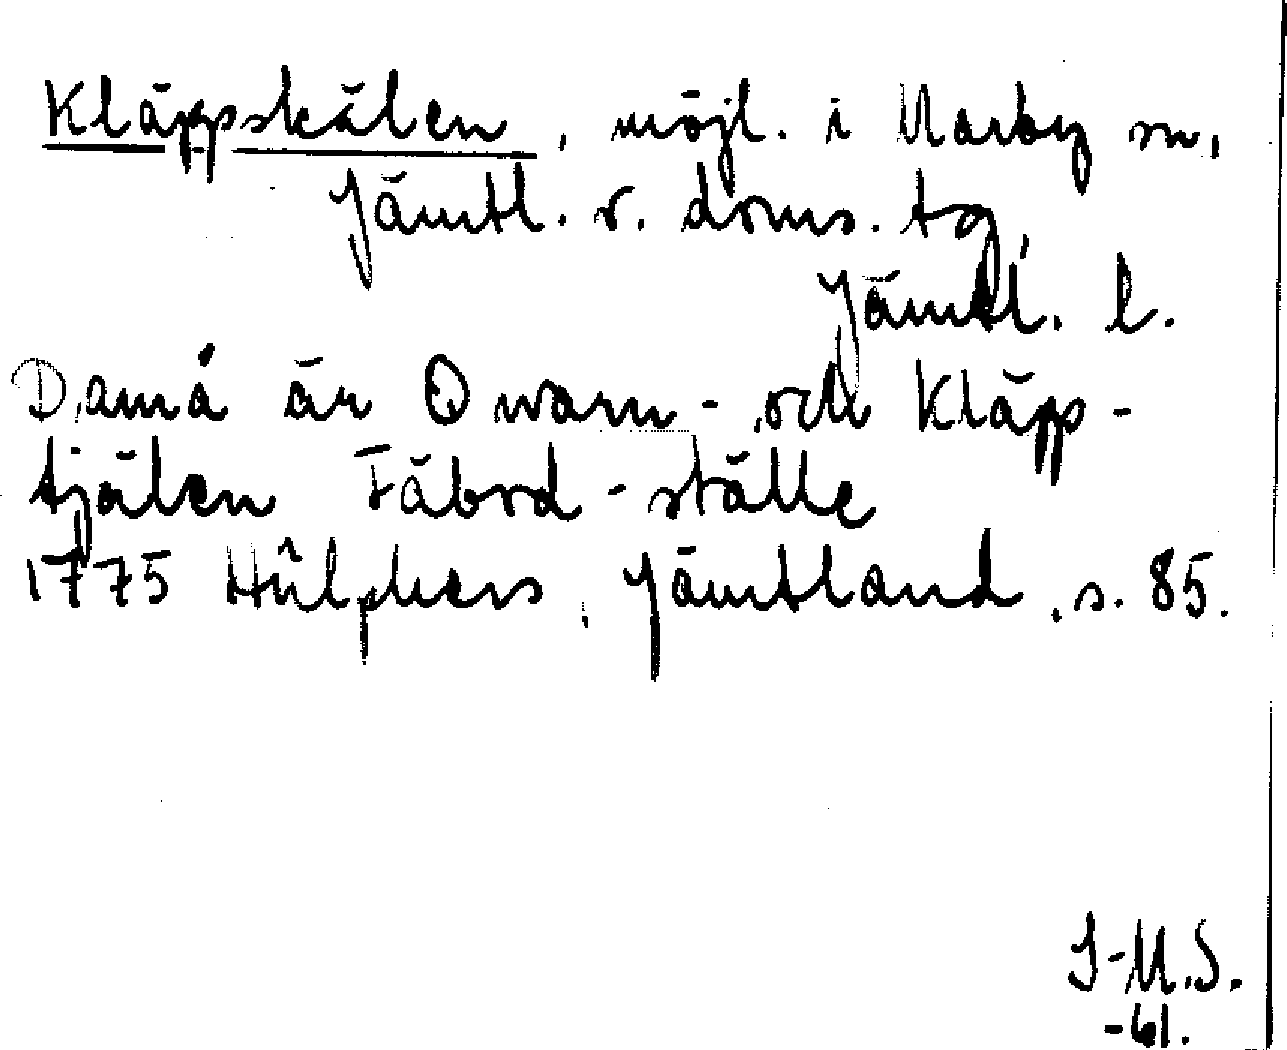 Kläppskälen, möjl. i Marby sn,
Jämtl. v. doms. tg,
Jämtl. l.
Damå är Qwarn- och Kläpp-
tjälen Fäbod-ställe
1775 Hülphers, Jämtland, s. 85.
I-M.S.
-61.